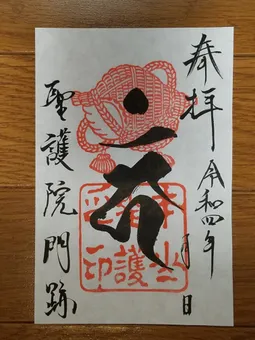 奉拝 令和四年 月 日
聖護院門跡